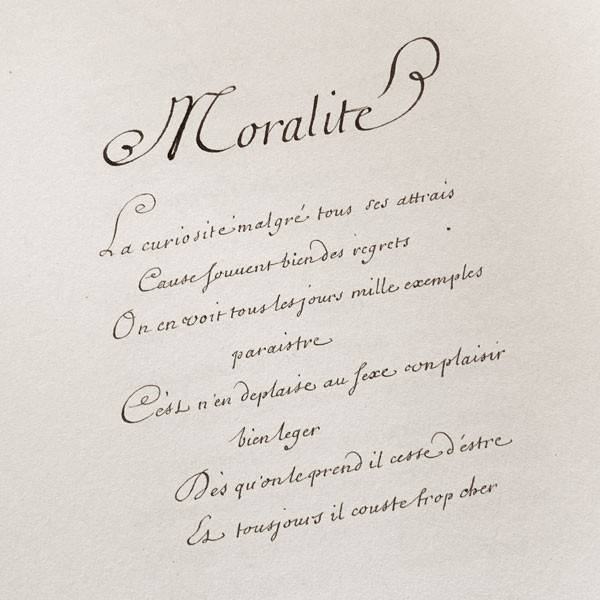 Moralite
La curiosité malgré tous ses attrais
Cause souvent bien des regrets
On en voit tous les jours mille exemples
paraistre
C'est n'en deplaise au sexe un plaisir
bien leger
Dès qu'on le prend il cesse d'éstre
Et tousjours il couste trop cher